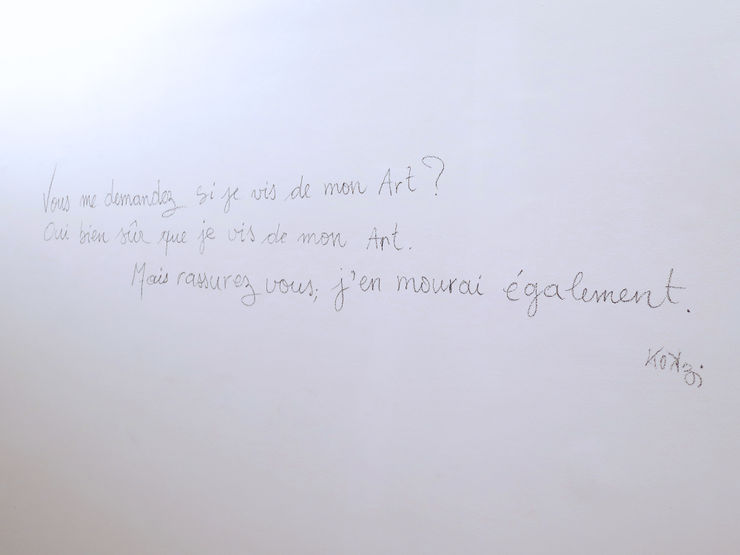 Vous me demandez si je vis de mon Art ?
Oui bien sûr que je vis de mon Art.
Mais rassurez vous, j'en mourai également.